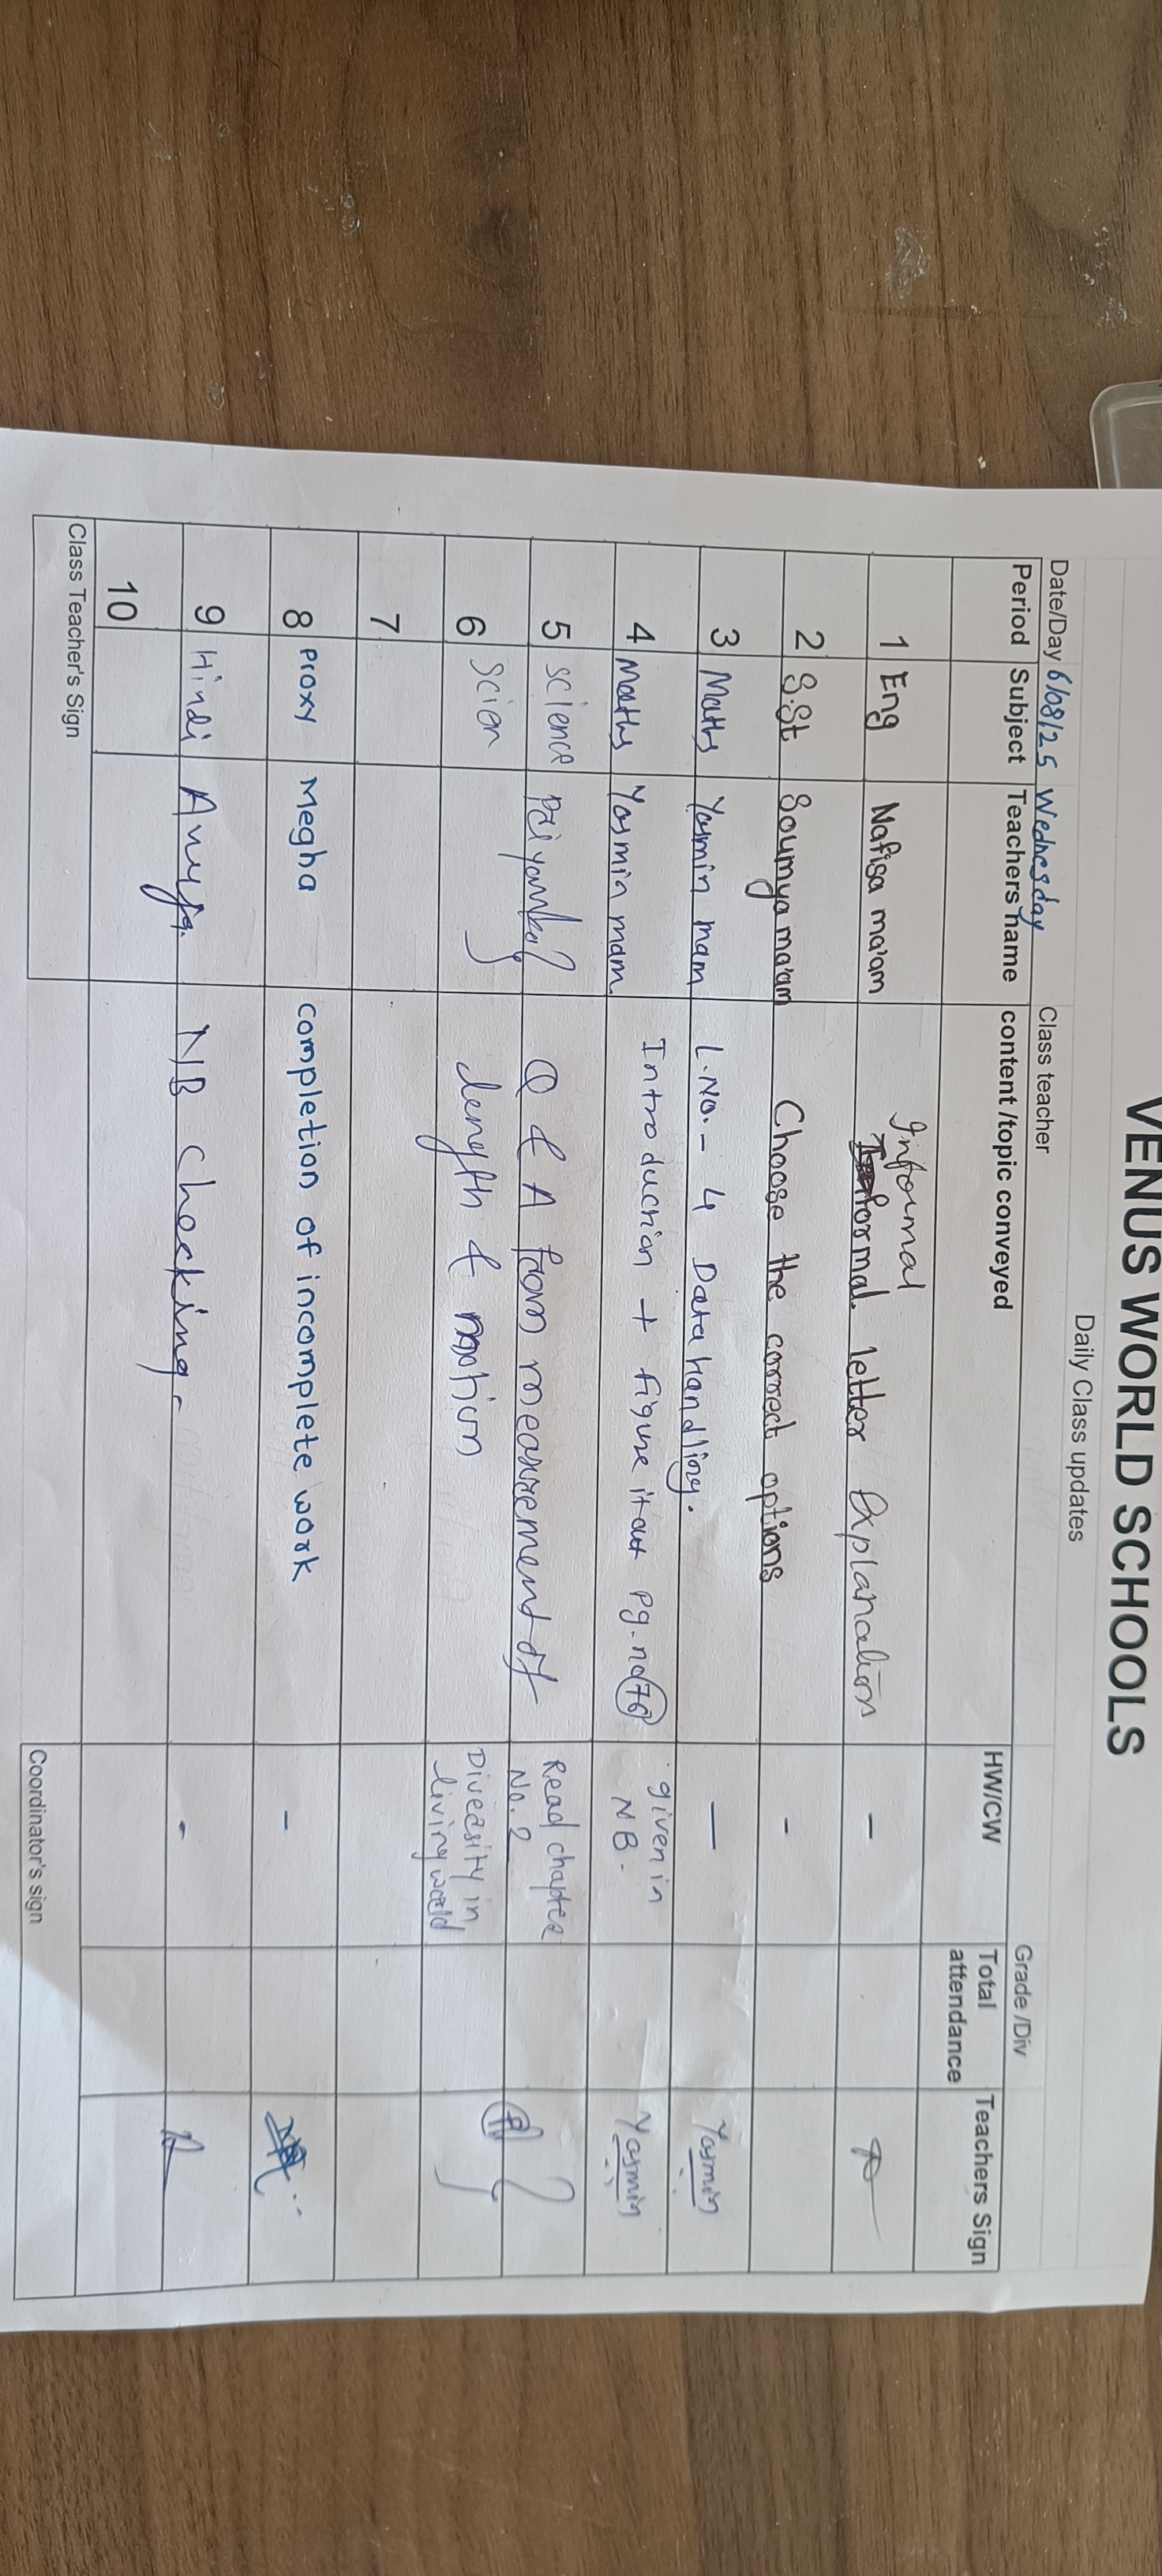 VENUS WORLD SCHOOLS
Daily Class updates
Date/Day 6/08/25 Wednesday Class teacher Grade /Div
Period Subject Teachers name content /topic conveyed HW/CW Total attendance Teachers Sign
1 Eng Nafisa ma'am Informal letter Explanation -
2 S.St Soumya ma'am Choose the correct options -
3 Maths Yasmin mam L.No.- 4 Data Handling. — Yasmin
4 Maths Yasmin mam Introduction + figure it out pg. no 76 given in NB. Yasmin
5 science Priyanka Q & A from measurement of Read chapter No. 2
6 Scien length & motion Diversity in living world
7
8 Proxy Megha completion of incomplete work -
9 Hindi N/B checking - -
10
Class Teacher's Sign Coordinator's sign